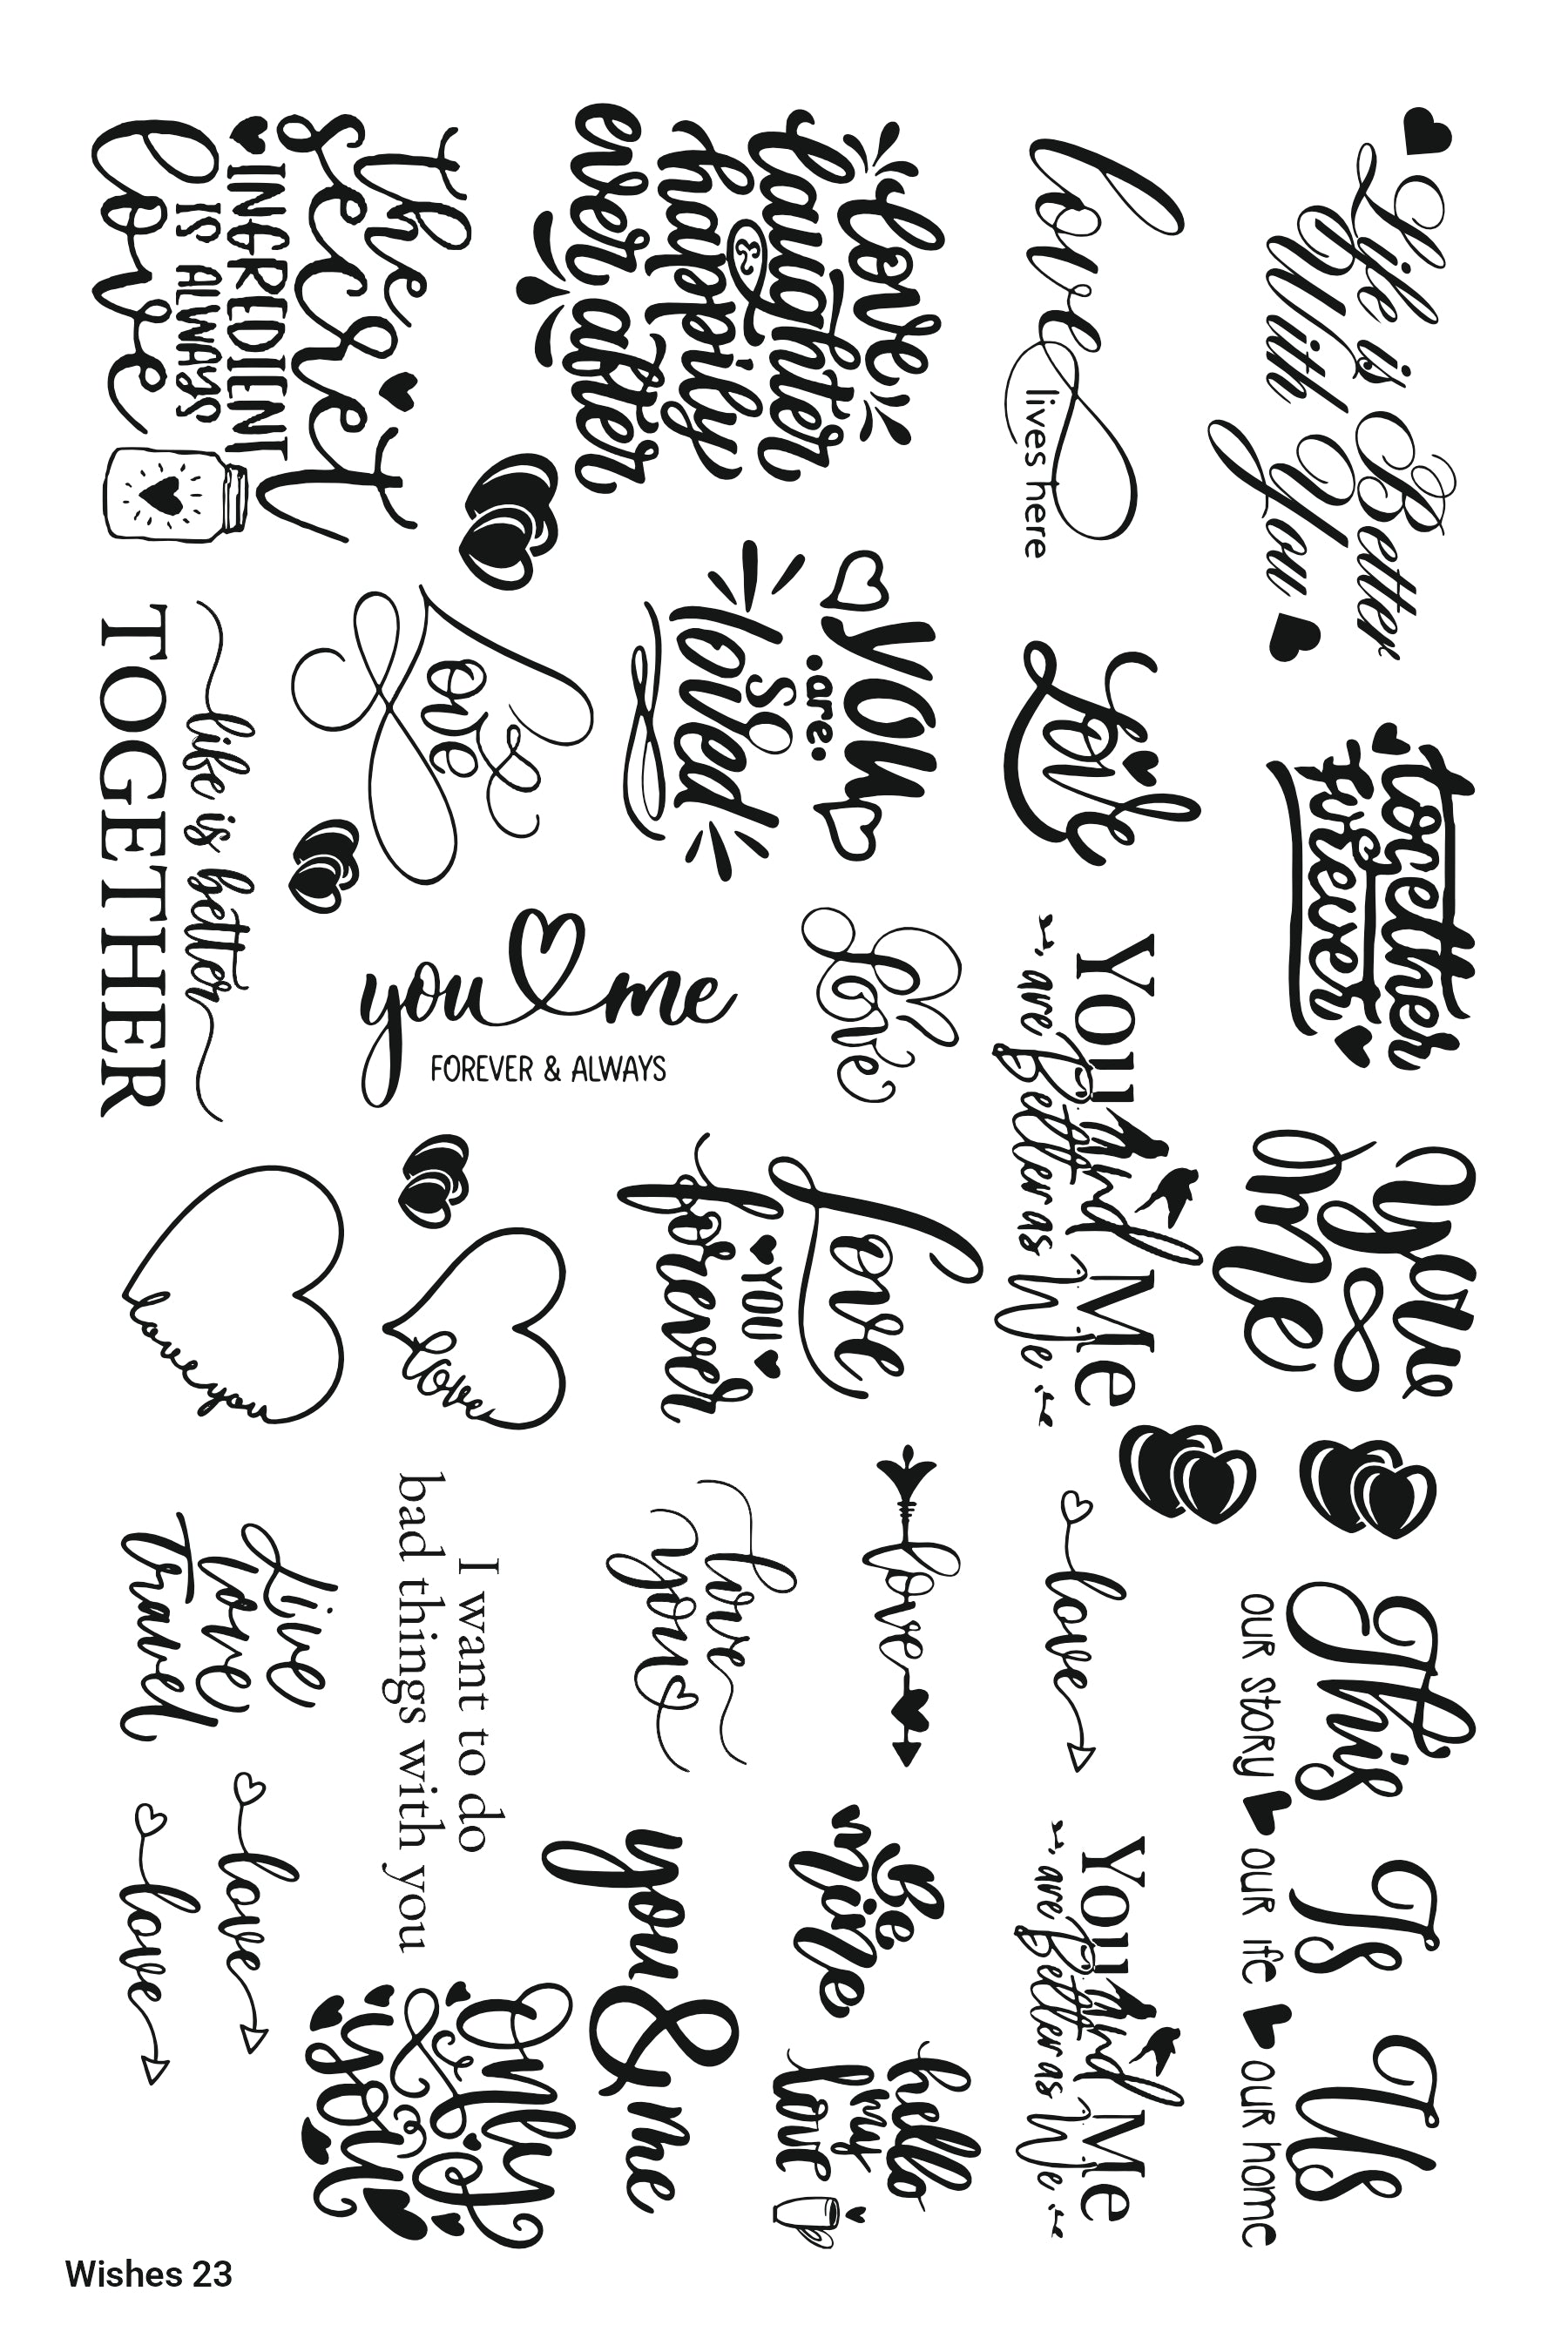 Life is Better
With You
together
forever
You
&
Me
This Is Us
our story our life our home
love
lives here
Love
You And Me
are Better as We
love
You And Me
are Better as We
love
laughter
&
happily
ever after
you
are
so
loved
Love
Love
YOU
forever
love
Be
mine
hello
my
love
the
secret
INGREDIENT
IS ALWAYS
love
Love
you me
FOREVER & ALWAYS
love
love
you
you & me
life is better
TOGETHER
love you
I want to do
bad things with you
Live
love
travel
love
love
Enjoy
you
Wishes 23